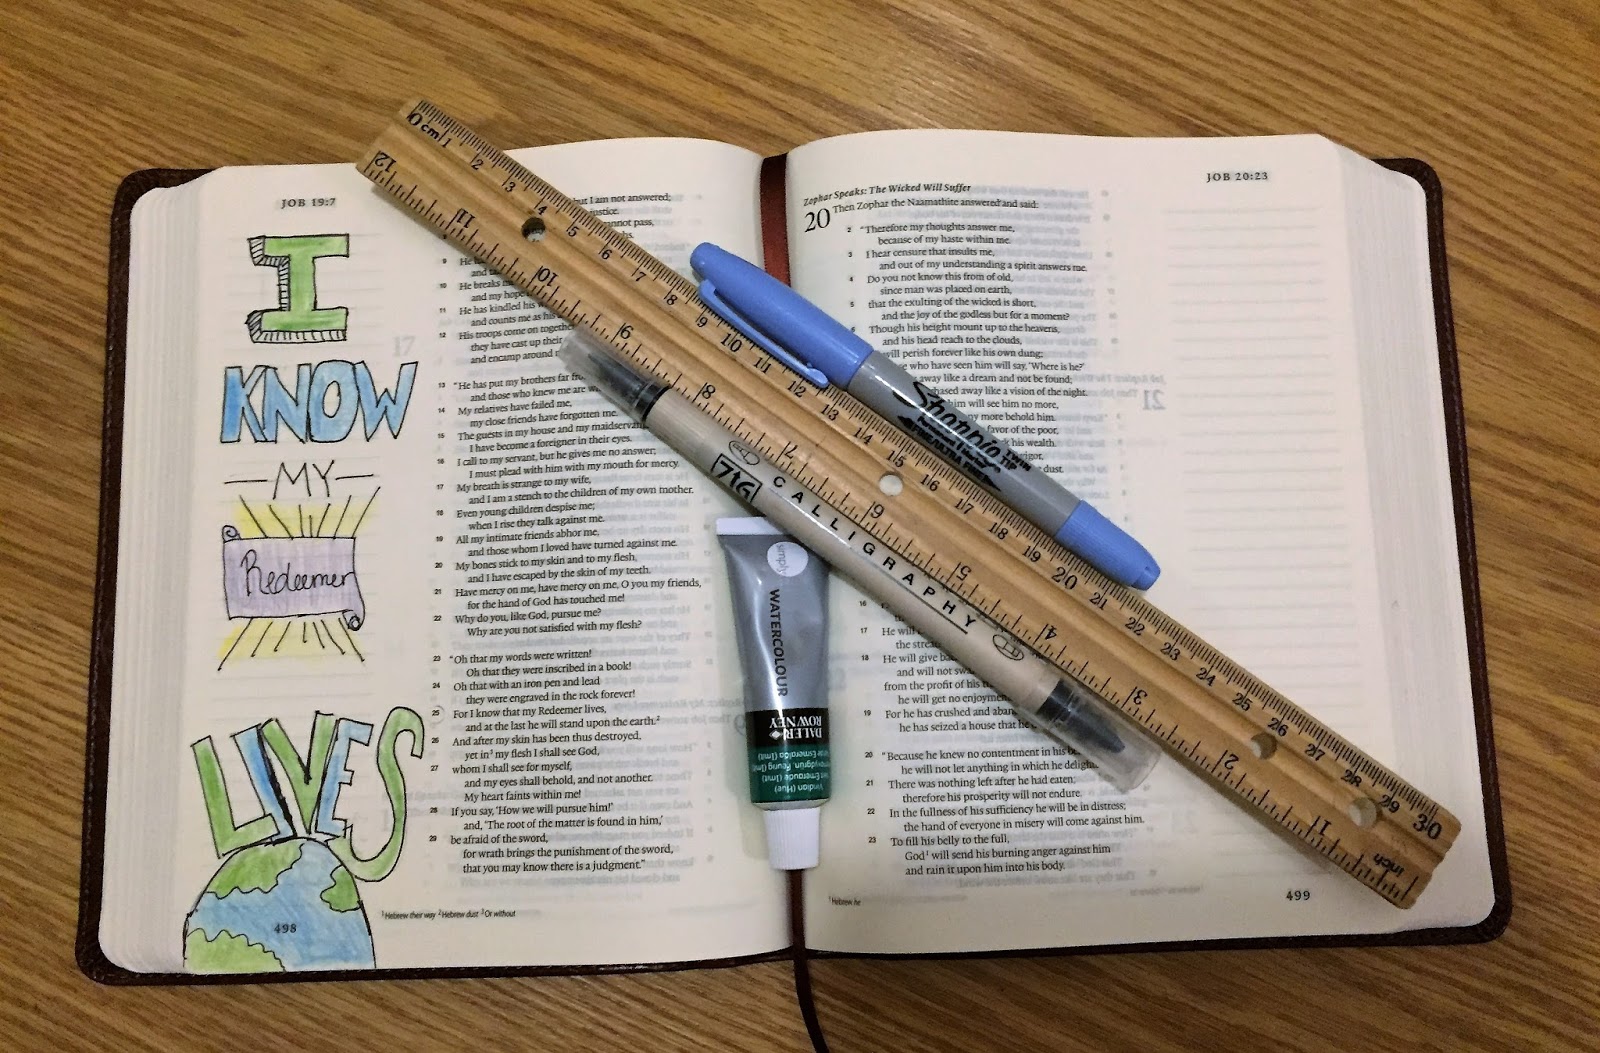 JOB 19:7
I
KNOW
MY
Redeemer
LIVES
498
but I am not answered;
justice.
cannot pass,
9 He
10 He breaks me
and my hope
11 He has kindled his
and counts me as his
12 His troops come on together
they have cast up their
and encamp around
13 "He has put my brothers far from
and those who knew me are
14 My relatives have failed me,
my close friends have forgotten me.
15 The guests in my house and my maidservants
I have become a foreigner in their eyes.
16 I call to my servant, but he gives me no answer;
I must plead with him with my mouth for mercy.
17 My breath is strange to my wife,
and I am a stench to the children of my own mother.
18 Even young children despise me;
when I rise they talk against me.
19 All my intimate friends abhor me,
and those whom I loved have turned against me.
20 My bones stick to my skin and to my flesh,
and I have escaped by the skin of my teeth.
21 Have mercy on me, have mercy on me, O you my friends,
for the hand of God has touched me!
22 Why do you, like God, pursue me?
Why are you not satisfied with my flesh?
23 "Oh that my words were written!
Oh that they were inscribed in a book!
24 Oh that with an iron pen and lead
they were engraved in the rock forever!
25 For I know that my Redeemer lives,
and at the last he will stand upon the earth.2
26 And after my skin has been thus destroyed,
yet in3 my flesh I shall see God,
27 whom I shall see for myself,
and my eyes shall behold, and not another.
My heart faints within me!
28 If you say, 'How we will pursue him!'
and, 'The root of the matter is found in him,'
29 be afraid of the sword,
for wrath brings the punishment of the sword,
that you may know there is a judgment."
1 Hebrew their way 2 Hebrew dust 3 Or without
0 cm 1 2 3 4 5 6 7 8 9 10 11 12 13 14 15 16 17 18 19 20 21 22 23 24 25 26 27 28 29 30
12 11 10 9 8 7 6 5 4 3 2 1 inch
716 CALLIGRAPHY
Sharpie
TWIN TIP
simply
WATERCOLOUR
DALER
ROWNEY
Viridian (Hue)
JOB 20:23
Zophar Speaks: The Wicked Will Suffer
20 Then Zophar the Naamathite answered and said:
2 "Therefore my thoughts answer me,
because of my haste within me.
3 I hear censure that insults me,
and out of my understanding a spirit answers me.
4 Do you not know this from of old,
since man was placed on earth,
5 that the exulting of the wicked is short,
and the joy of the godless but for a moment?
6 Though his height mount up to the heavens,
and his head reach to the clouds,
will perish forever like his own dung;
who have seen him will say, 'Where is he?'
away like a dream and not be found;
chased away like a vision of the night.
him will see him no more,
any more behold him.
favor of the poor,
his wealth.
vigor,
dust.
16
17 He will
the
18 He will give
and will not
from the profit of his
he will get no enjoyment
19 For he has crushed and
he has seized a house that he
20 "Because he knew no contentment in his
he will not let anything in which he
21 There was nothing left after he had eaten;
therefore his prosperity will not endure.
22 In the fullness of his sufficiency he will be in distress;
the hand of everyone in misery will come against him.
23 To fill his belly to the full,
God1 will send his burning anger against him
and rain it upon him into his body.
1 Hebrew he
499